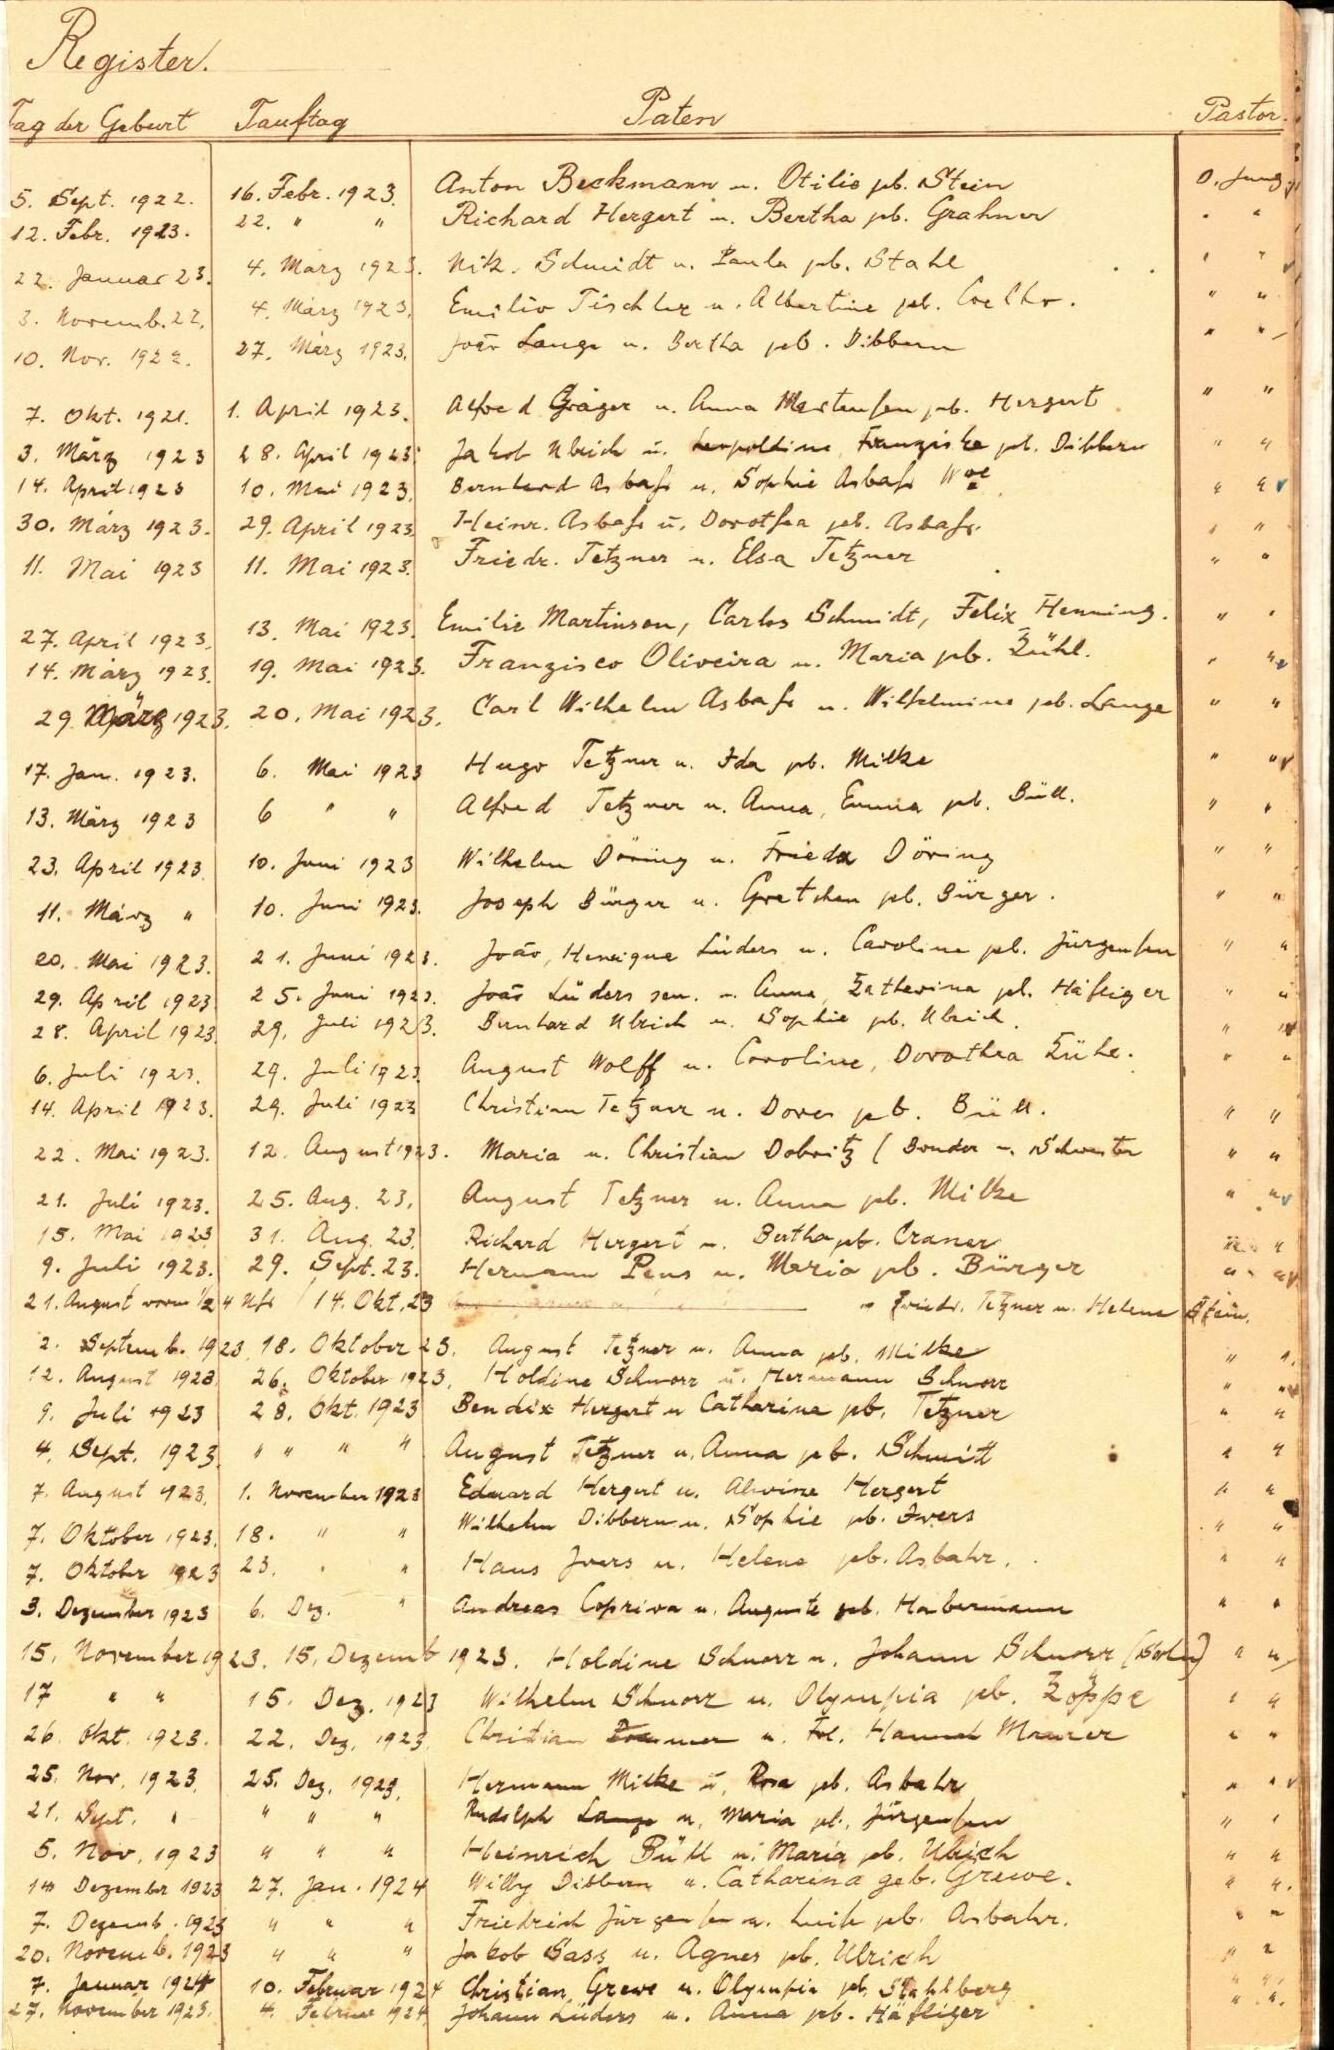 Register.
Tag der Geburt Tauftag Paten Pastor.
5. Sept. 1922. 16. Febr. 1923. Anton Beckmann u. Otilie geb. Stein O. Jung
12. Febr. 1923. 22. " " Richard Hergert u. Bertha geb. Grahner " "
22. Januar 23. 4. März 1923. Nik. Schmidt u. Paula geb. Stahl " "
3. Novemb. 22. 4. März 1923. Emilio Tischler u. Albertine geb. Coelho. " "
10. Nov. 1922. 27. März 1923. João Lange u. Bertha geb. Dibbern " "
7. Okt. 1921. 1. April 1923. Alfred Gräger u. Anna Martensen geb. Hergert " "
3. März 1923 28. April 1923. Jakob Ulrich u. Leopoldine, Franziska geb. Dibbern " "
14. April 1923 10. Mai 1923. Bernhard Asbahr u. Sophie Asbahr Wwe. " "
30. März 1923. 29. April 1923. Heinr. Asbahr u. Dorothea geb. Asbahr. " "
11. Mai 1923 11. Mai 1923. Friedr. Tetzner u. Elsa Tetzner " "
27. April 1923. 13. Mai 1923. Emilie Martinson, Carlos Schmidt, Felix Henning. " "
14. März 1923. 19. Mai 1923. Franzisco Oliveira u. Maria geb. Zühl. " "
29. März 1923. 20. Mai 1923. Carl Wilhelm Asbahr u. Wilhelmine geb. Lange " "
17. Jan. 1923. 6. Mai 1923 Hugo Tetzner u. Ida geb. Milke " "
13. März 1923 6 " " Alfred Tetzner u. Anna, Emma geb. Büll. " "
23. April 1923. 10. Juni 1923 Wilhelm Döring u. Frieda Döring " "
11. März " 10. Juni 1923. Joseph Bürger u. Gretchen geb. Bürger. " "
20. Mai 1923. 21. Juni 1923. João, Henrique Lüders u. Caroline geb. Jürgensen " "
29. April 1923 25. Juni 1923. João Lüders sen. u. Anna, Katherina geb. Häfliger " "
28. April 1923. 29. Juli 1923. Bernhard Ulrich u. Sophie geb. Ulrich. " "
6. Juli 1923. 29. Juli 1923. August Wolff u. Caroline, Dorothea Zühl. " "
14. April 1923. 29. Juli 1923 Christian Tetzner u. Dores geb. Büll. " "
22. Mai 1923. 12. August 1923. Maria u. Christian Dobritz (Bruder u. Schwester " "
21. Juli 1923. 25. Aug. 23. August Tetzner u. Anna geb. Milke " "
15. Mai 1923 31. Aug. 23. Richard Hergert u. Bertha geb. Craner " "
9. Juli 1923. 29. Sept. 23. Hermann Pens u. Maria geb. Bürger " "
21. August vorm 1/2 4 Uhr 14. Okt. 23 u Friedr. Tetzner u. Helene Stein.
2. Septemb. 1923. 18. Oktober 23. August Tetzner u. Anna geb. Milke " "
12. August 1923. 26. Oktober 1923. Holdine Schnorr u. Hermann Schnorr " "
9. Juli 1923 28. Okt. 1923 Bendix Hergert u Catharina geb. Tetzner " "
4. Sept. 1923. " " " " August Tetzner u. Anna geb. Schmitt " "
7. August 1923. 1. November 1923 Eduard Hergert u. Alwine Hergert " "
7. Oktober 1923. 18. " " Wilhelm Dibbern u. Sophie geb. Ivers " "
7. Oktober 1923 23. " " Hans Ivers u. Helene geb. Asbahr. " "
3. Dezember 1923 6. Dez. " Andreas Copriva u. Auguste geb. Habermann " "
15. November 1923. 15. Dezemb 1923. Holdine Schnorr u. Johann Schnorr (Sohn) " "
17 " " 15. Dez. 1923 Wilhelm Schnorr u. Olympia geb. Zöppe " "
26. Okt. 1923. 22. Dez. 1923. Christian u. Frl. Hannah Maurer " "
25. Nov. 1923. 25. Dez. 1923. Hermann Milke u. Rosa geb. Asbahr " "
21. Sept. " " " " Rudolph Lange u. Maria geb. Jürgensen " "
5. Nov. 1923 " " " Heinrich Büll u. Maria geb. Ulrich " "
14 Dezember 1923 27. Jan. 1924 Willy Dibbern u. Catharina geb. Grewe. " "
7. Dezemb. 1923 " " " Friedrich Jürgensen u. Luise geb. Asbahr. " "
20. Novemb. 1923 " " " Jakob Sass u. Agnes geb. Ulrich " "
7. Januar 1924 10. Februar 1924 Christian Grewe u. Olympia geb. Stahlberg " "
27. November 1923. 4. Februar 1924 Johann Lüders u. Anna geb. Häfliger " "